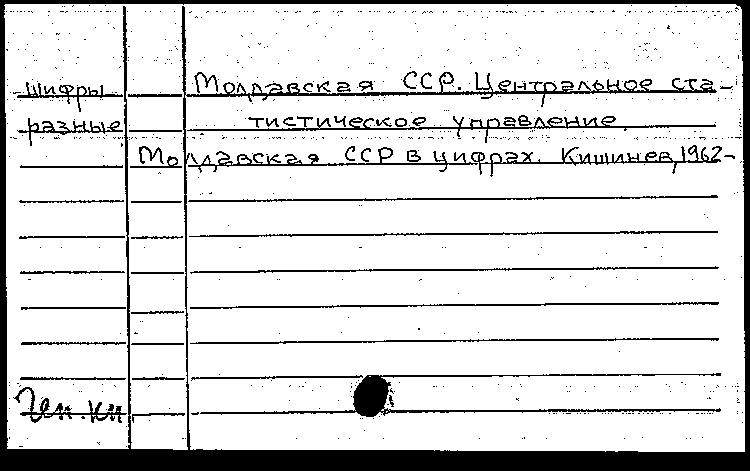 шифры Молдавская ССР. Центральное ста-
разные тистическое управление.
Молдавская ССР в цифрах. Кишинев, 1962-